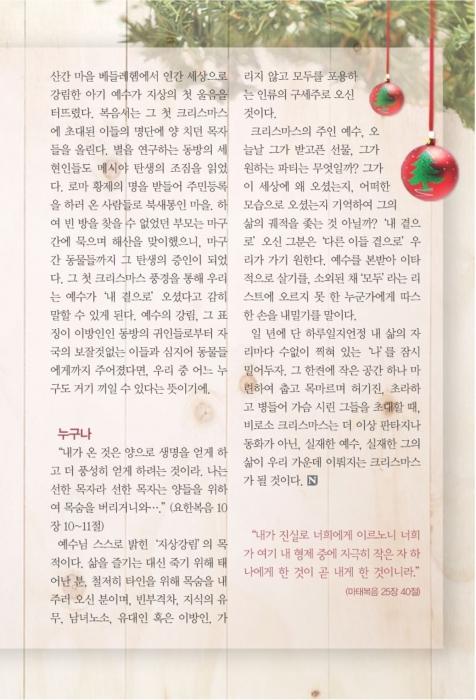 산간 마을 베들레헴에서 인간 세상으로
강림한 아기 예수가 지상의 첫 울음을
터뜨렸다. 복음서는 그 첫 크리스마스
에 초대된 이들의 명단에 양 치던 목자
들을 올린다. 별을 연구하는 동방의 세
현인들도 메시아 탄생의 조짐을 읽었
다. 로마 황제의 명을 받들어 주민등록
을 하러 온 사람들로 북새통인 마을. 하
여 빈 방을 찾을 수 없었던 부모는 마구
간에 묵으며 해산을 맞이했으니, 마구
간 동물들까지 그 탄생의 증인이 되었
다. 그 첫 크리스마스 풍경을 통해 우리
는 예수가 ‘내 곁으로’ 오셨다고 감히
말할 수 있게 된다. 예수의 강림, 그 표
징이 이방인인 동방의 귀인들로부터 자
국의 보잘것없는 이들과 심지어 동물들
에게까지 주어졌다면, 우리 중 어느 누
구도 거기 끼일 수 있다는 뜻이기에.
누구나
“내가 온 것은 양으로 생명을 얻게 하
고 더 풍성히 얻게 하려는 것이라. 나는
선한 목자라 선한 목자는 양들을 위하
여 목숨을 버리거니와….” (요한복음 10
장 10~11절)
예수님 스스로 밝힌 ‘지상강림’의 목
적이다. 삶을 즐기는 대신 죽기 위해 태
어난 분, 철저히 타인을 위해 목숨을 내
주러 오신 분이며, 빈부격차, 지식의 유
무, 남녀노소, 유대인 혹은 이방인, 가
리지 않고 모두를 포용하
는 인류의 구세주로 오신
것이다.
크리스마스의 주인 예수, 오
늘날 그가 받고픈 선물, 그가
원하는 파티는 무엇일까? 그가
이 세상에 왜 오셨는지, 어떠한
모습으로 오셨는지 기억하여 그의
삶의 궤적을 좇는 것 아닐까? ‘내 곁으
로’ 오신 그분은 ‘다른 이들 곁으로’ 우
리가 가기 원한다. 예수를 본받아 이타
적으로 살기를, 소외된 채 ‘모두’라는 리
스트에 오르지 못 한 누군가에게 따스
한 손을 내밀기를 말이다.
일 년에 단 하루일지언정 내 삶의 자
리마다 수없이 찍혀 있는 ‘나’를 잠시
밀어두자. 그 한켠에 작은 공간 하나 마
련하여 춥고 목마르며 허기진, 초라하
고 병들어 가슴 시린 그들을 초대할 때,
비로소 크리스마스는 더 이상 판타지나
동화가 아닌, 실재한 예수, 실재한 그의
삶이 우리 가운데 이뤄지는 크리스마스
가 될 것이다. N
“내가 진실로 너희에게 이르노니 너희
가 여기 내 형제 중에 지극히 작은 자 하
나에게 한 것이 곧 내게 한 것이니라.”
(마태복음 25장 40절)